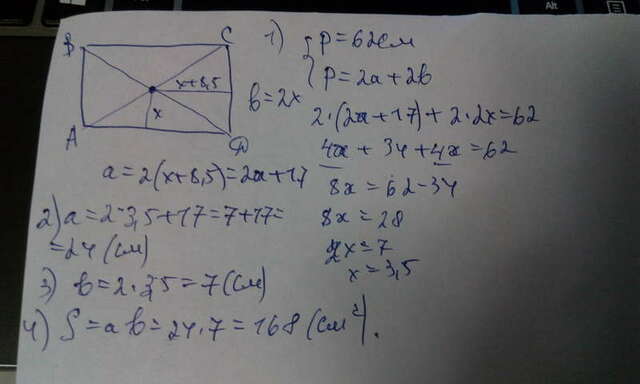 B C
x+8,5
x
A D
1) { P=62см
P=2a+2b
b=2x
2·(2x+17)+2·2x=62
4x+34+4x=62
8x=62-34
8x=28
2x=7
x=3,5
a=2(x+8,5)=2x+17
2) a=2·3,5+17=7+17=
=24 (см)
3) b=2·3,5=7 (см)
4) S=ab=24·7=168 (см²).
Alt